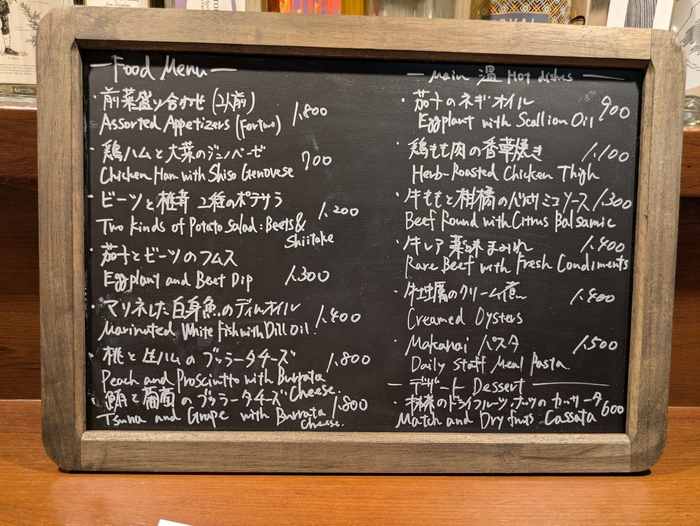 Food Menu
・前菜盛り合わせ(2人前)
Assorted Appetizers (For two) 1,800
・鶏ハムと大葉のジェノベーゼ
Chicken Ham with Shiso Genovese 700
・ビーツと椎茸 2種のポテサラ
Two kinds of Potato Salad: Beets & Shiitake 1,200
・茄子とビーツのフムス
Eggplant and Beet Dip 1,300
・マリネした白身魚のディルオイル
Marinated White Fish with Dill Oil 1,400
・桃と生ハムのブッラータチーズ
Peach and Prosciutto with Burrata Cheese. 1,800
・鮪と葡萄のブッラータチーズ
Tsuna and Grape with Burrata Cheese. 1,800
Main 温 Hot dishes
・茄子のネギオイル 900
Eggplant with Scallion Oil
・鶏もも肉の香草焼き 1,100
Herb-Roasted Chicken Thigh
・牛ももと柑橘のバルサミコソース 1,300
Beef Round with Citrus Balsamic
・牛レア薬味まみれ 1,400
Rare Beef with Fresh Condiments
・牡蠣のクリーム煮 1,400
Creamed Oysters
・Makanai パスタ 1,500
Daily Staff Meal Pasta.
デザート Dessert
・抹茶のドライフルーツ、ナッツのカッサータ 600
Match and Dry fruits Cassata